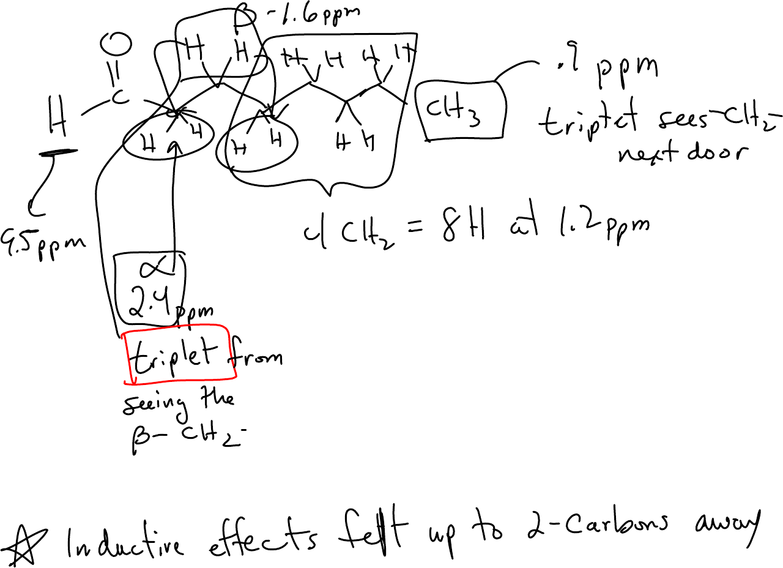 β -1.6ppm
O
H H H H H H
H C CH3
H H H H H H
.9 ppm
triplet sees -CH2-
next door
9.5ppm
4 CH2 = 8H at 1.2ppm
α
2.4ppm
triplet from
seeing the
β- CH2-
☆ Inductive effects felt up to 2-Carbons away